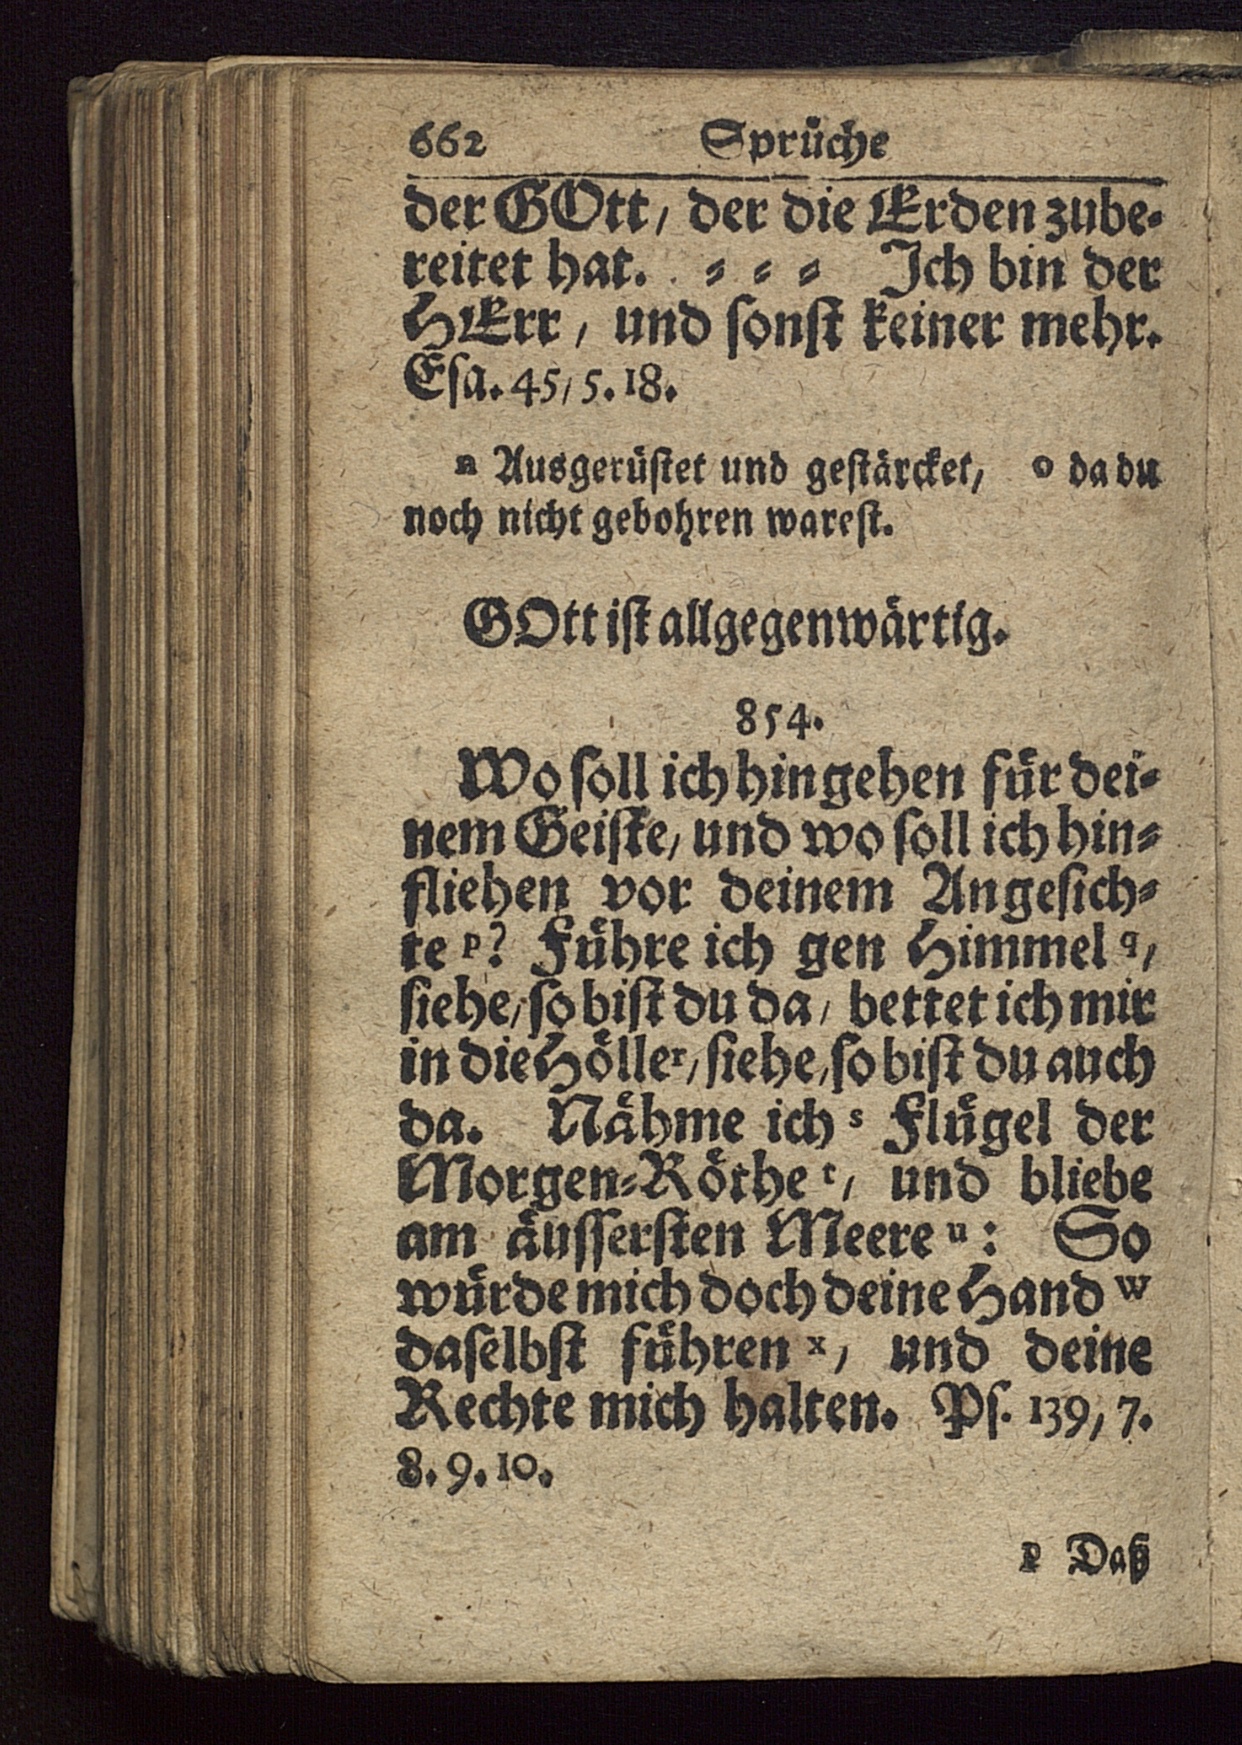 662 Sprüche
der GOtt, der die Erden zube-
reitet hat. - - - Ich bin der
HErr, und sonst keiner mehr.
Esa. 45, 5. 18.
n Ausgerüstet und gestärcket, o da du
noch nicht gebohren warest.
GOtt ist allgegenwärtig.
854.
Wo soll ich hingehen für dei-
nem Geiste, und wo soll ich hin-
fliehen vor deinem Angesich-
te p? Führe ich gen Himmel q,
siehe, so bist du da, bettet ich mir
in die Hölle r, siehe, so bist du auch
da. Nähme ich s Flügel der
Morgen-Röthe t, und bliebe
am äussersten Meere u: So
würde mich doch deine Hand w
daselbst führen x, und deine
Rechte mich halten. Ps. 139, 7.
8. 9. 10.
p Daß